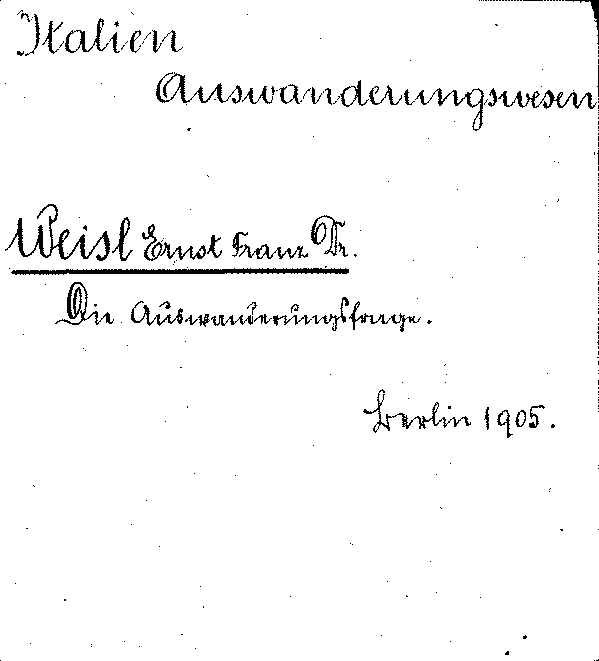 Italien
Auswanderungswesen
Weisl Ernst Franz Dr.
Die Auswanderungsfrage.
Berlin 1905.